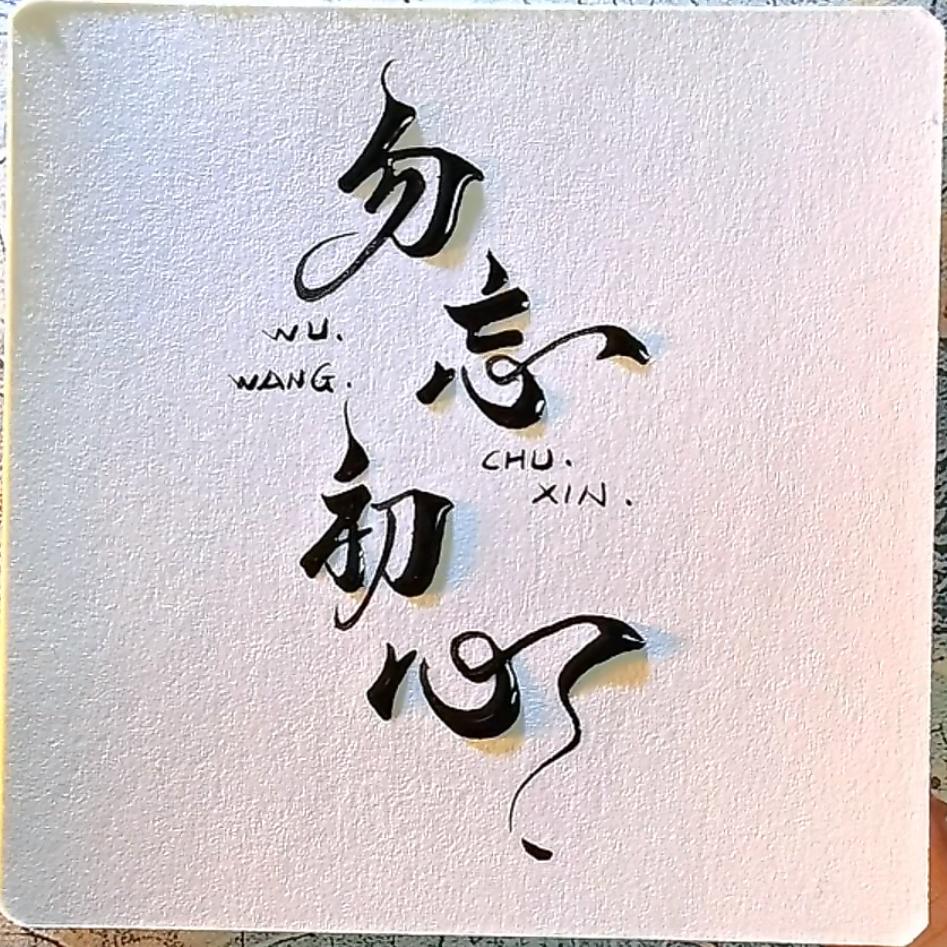 勿
忘
WU.
WANG.
CHU.
XIN.
初
心